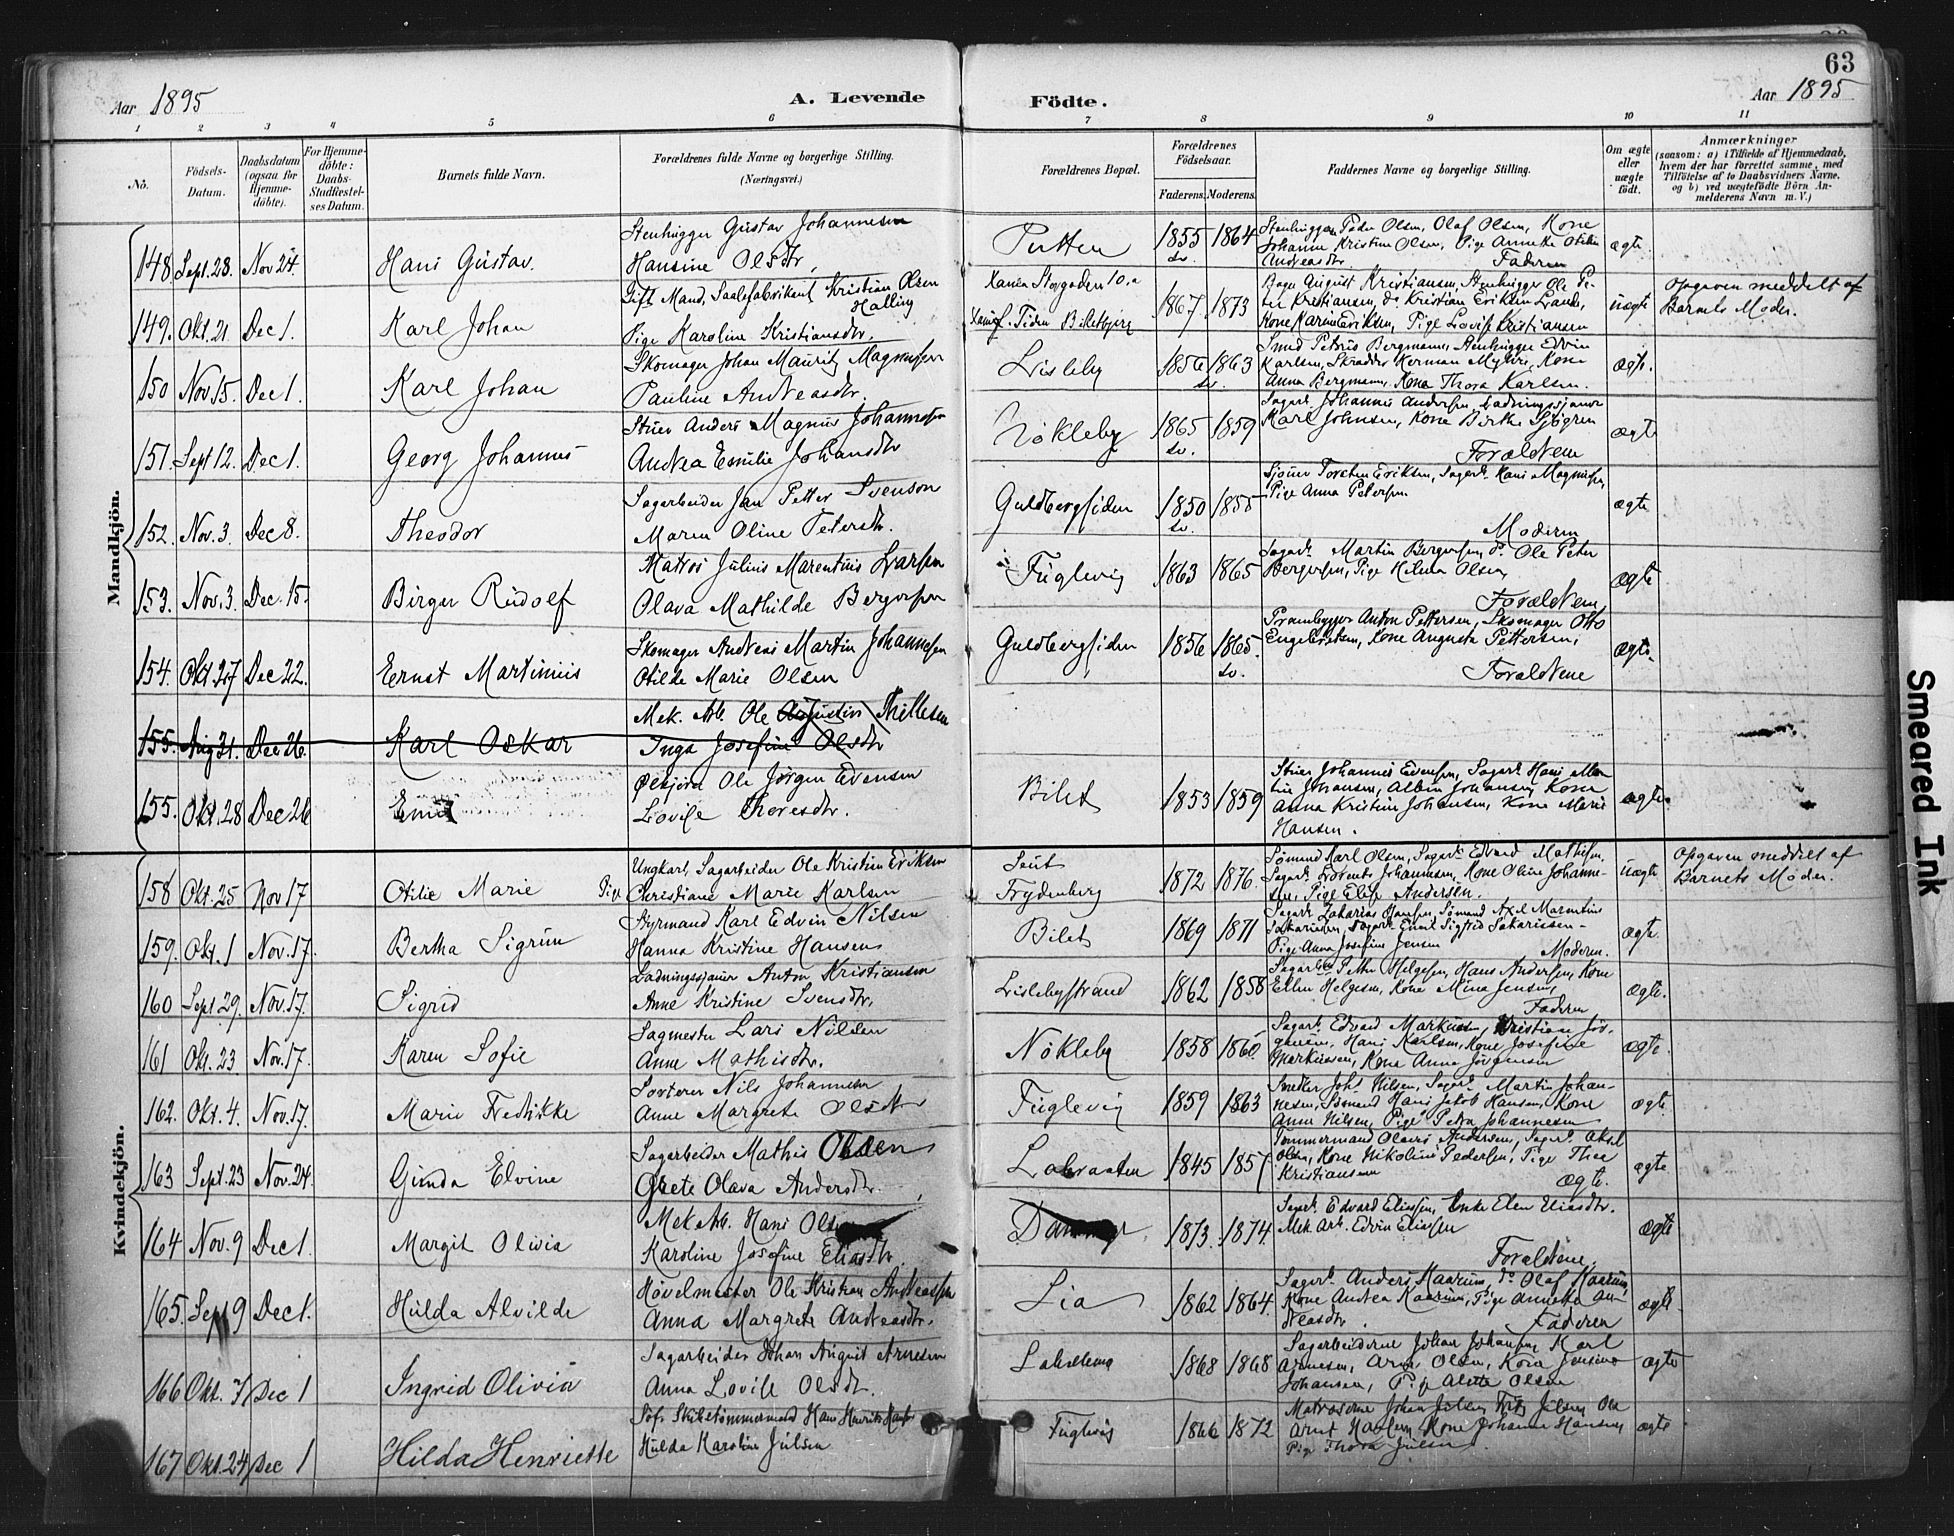 63
Aar 1895
A. Levende
Födte.
Aar 1895
1 2 3 4 5 6 7 8 9 10 11
No.
Födsels-Datum.
Daabsdatum (ogsaa for Hjemme-döbte).
For Hjemme-döbte: Daabs-Stadfæstel-ses Datum.
Barnets fulde Navn.
Forældrenes fulde Navne og borgerlige Stilling.
(Næringsvei.)
Forældrenes Bopæl.
Forældrenes Födselsaar.
Faderens. Moderens.
Faddernes Navne og borgerlige Stilling.
Om ægte eller uægte födt.
Anmærkninger
(saasom: a) i Tilfælde af Hjemmedaab,
hvem der har forrettet samme, med
Tilföielse af to Daabsvidners Navne,
og b) ved uægtefödte Börn An-
melderens Navn m. V.)
Mandkjön.
148. Sept. 28. Nov 24. Hans Gustav.
Stenhugger Gustav Johannesen
Hansine Olsdtr.
Putten 1855 sv. 1864
Stenhugger Peder Olsen, Olaf Olsen, Kone
Johanne Kristine Olsen, Pige Annette
Andreasdtr. Faderen
ægte.
149. Okt. 21 Dec 1. Karl Johan
Gift Mand, Kristian Olsen
Halling
Pige Karoline Kristiansdtr.
Storgaden 10.
1867. 1873
August Kristiansen, Stenhugger Ole Pe-
ter Kristiansen, do Kristian Eriksen
Kone Karine Eriksen, Pige Lovise Kristiansen
uægte
Opgaven meddelt af
Barnets Moder.
150 Nov. 15. Dec 1. Karl Johan
Skomager Johan Mauritz Magnussen
Pauline Andreasdtr.
Lisleby 1856 sv. 1863
Smed Petrus Bergmann, Stenhugger Edvin
Karlsen, Skrædder Herman Myhre, Kone
Anna Bergmann, Kone Thora Karlsen.
ægte.
151. Sept 12. Dec 1. Georg Johannes
Stuer Anders Magnus Johannesen
Andrea Emilie Johansdtr
Nökleby 1865 sv. 1859
Sagarb. Johannes Andersen, Ladningssjouer
Karl Johnsen, Kone Birthe Sjögren
Forældrene
ægte
152. Nov. 3. Dec 8. Theodor
Sagarbeider Jan Petter Svenson
Maren Oline Petersdtr.
Guldbergsiden 1850 sv. 1855
Sjouer Torsten Eriksen, Sagarb. Hans Magnussen,
Pige Anna Petersen
Moderen
ægte
153. Nov. 3. Dec. 15. Birger Rudolf
Matros Julius Marentius Larsen
Olava Mathilde Bergersen
Fuglevig 1863 1865
Sagarb. Martin Bergersen, do Ole Peter
Bergersen, Pige Helma Olsen,
Forældrene
ægte
154. Okt. 27 Dec 22. Ernst Martinius
Skomager Andreas Martin Johannesen
Otilde Marie Olsen
Guldbergsiden 1856 1865. sv.
Prambygger Anton Pettersen, Skomager Otto
Engebretsen, Kone Augusta Pettersen,
Forældrene
ægte.
155. Aug 31. Dec 26. Karl Oskar
Mek. Arb. Ole Augustin Thillesen
Inga Josefine Olsdtr
155. Okt. 28 Dec 26 Emil
Ölkjörer Ole Jörgen Evensen
Lovise Thoresdtr.
Bilet 1853 1859
Stuer Johannes Evensen, Sagarb. Hans Mar-
tin Johansen, Albin Johansen, Kone
Anna Kristine Johansen, Kone Marie
Hansen.
ægte.
Kvindekjön.
158 Okt. 25 Nov 17 Otilie Marie
Ungkarl, Sagarbeider Ole Kristian Eriksen
Pige Christiane Marie Karlsen
Seut
Frydenberg 1872 1876.
Sömand Karl Olsen, Sagarb. Edvard Mathisen,
Sagarb. Lorents Johannesen, Kone Oline Johanne-
sen, Pige Elise Andersen.
uægte
Opgaven meddelt af
Barnets Moder.
159. Okt. 1 Nov. 17. Bertha Sigrun
Styrmand Karl Edvin Nilsen
Hanna Kristine Hansen
Bilet 1869 1871
Sagarb. Zakarias Hansen, Sömand Axel Marentius
Sakariasen, Sagarb. Emil Sigfrid Sakariasen
Pige Anna Josefine Jensen Moderen.
ægte.
160 Sept 29. Nov. 17. Sigrid
Ladningssjouer Anton Kristiansen
Anne Kristine Svensdtr.
Lislebystrand 1862 1858
Sagarb. Petter Helgesen, Hans Andersen, Kone
Ellen Helgesen, Kone Mina Jensen,
Faderen
ægte.
161 Okt. 23 Nov. 17. Karen Sofie
Sagmester Lars Nilsen
Anne Mathisdtr.
Nökleby 1858 1860
Sagarb. Edvard Markussen, Kristian Jör-
gensen, Hans Karlsen, Kone Josefine
Markussen, Kone Anna Jörgensen
ægte.
162. Okt. 4. Nov. 17. Marie Fredrikke
Sorterer Nils Johannesen
Anne Margrete Olsdtr
Fuglevig 1859 1863
Snedker Johs Nilsen, Sagarb. Martin Johan-
nesen, Sömand Hans Jakob Hansen, Kone
Anne Nilsen, Pige Petra Johannesen
ægte.
163 Sept. 23 Nov. 24. Gunda Elvine
Sagarbeider Mathis Olsen
Grete Olava Andersdtr.
Labraaten 1845 1857
Tömmermand Olaus Andersen, Sagarb. Aksel
Olsen, Kone Nikoline Pedersen, Pige Thea
Kristiansen ægte.
ægte
164 Nov. 9 Dec 1. Margit Olivia
Mek Arb. Hans Olsen
Karoline Josefine Eliasdtr.
1873. 1874
Sagarb. Edvard Eliassen, Enke Elen Eliasdtr.
Mek Arb. Edvin Eliassen
Forældrene.
ægte
165. Sept 9 Dec 1. Hulda Alvilde
Hövelmester Ole Kristian Andreassen
Anna Margrete Andreasdtr.
Lia 1862 1864.
Sagarb. Anders Kaarum, do Olaf Kaarum,
Kone Andrea Kaarum, Pige Annette An-
dreasdtr. Faderen
ægte
166 Okt. 7 Dec 1 Ingrid Olivia
Sagarbeider Johan August Arnesen
Anna Lovise Olsdtr.
1868 1868
Sagarbeiderne Johan Johansen, Karl
Arnesen, Arne Olsen, Kone Jensine
Johansen, Pige Alette Olsen
ægte
167 Okt. 24 Dec 1 Hilda Henriette
Söf. Skibstömmermand Hans Henrik Hansen
Hulda Karoline Julsen
Fuglevig 1866 1872
Matroserne Johan Julsen, Fritz Julsen, Ole
Arnt Karlsen, Kone Johanne Hansen,
Pige Thora Julsen
ægte
Smeared Ink